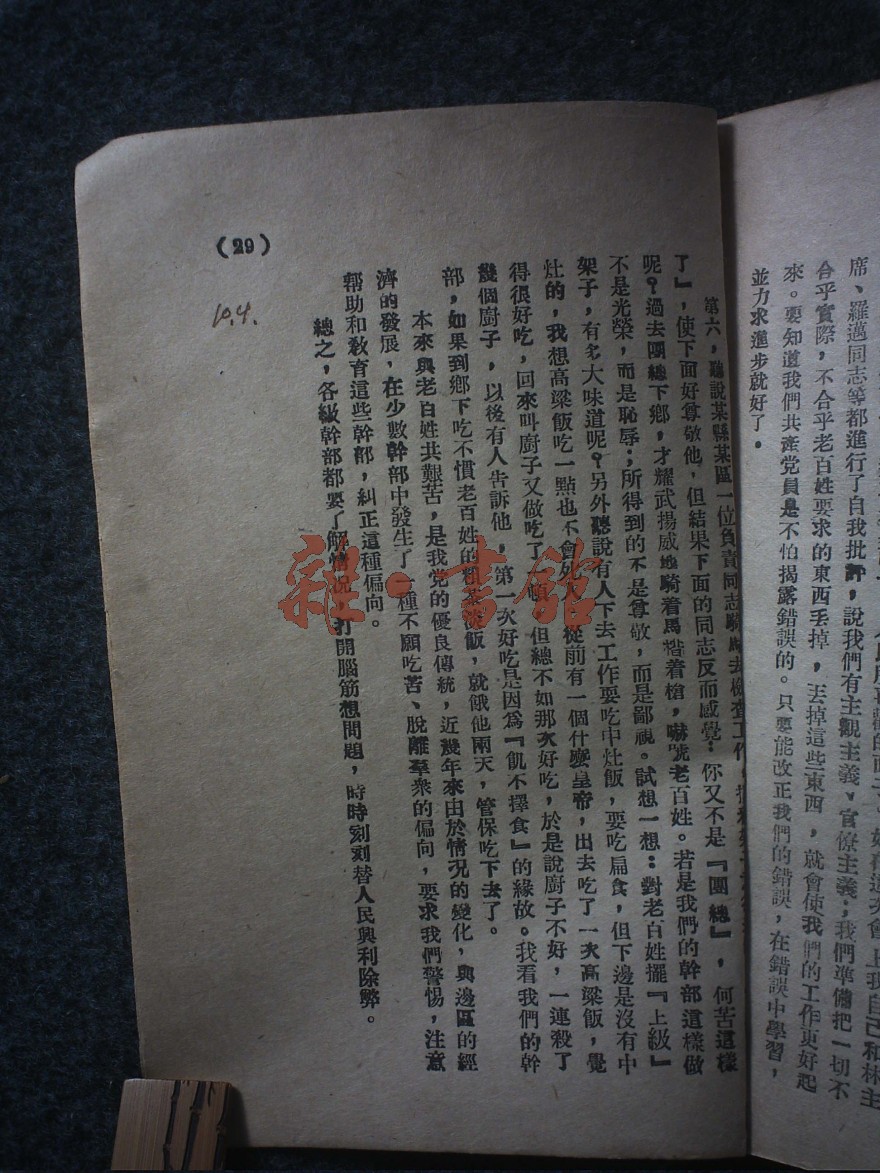 席、羅邁同志等都進行了自我批評，說我們有主觀主義、官僚主義；我們準備把一切不
合乎實際，不合乎老百姓要求的東西丟掉，丟掉這些東西，就會使我們的工作更好起
來。要知道我們共產党員是不怕揭露錯誤的。只要能改正我們的錯誤，在錯誤中學習，
並力求進步就好了。
第六，聽說某縣某區一位負責同志騎馬去檢查工作，
了』，使下面好尊敬他，但結果下面的同志反而感覺：你又不是『團總』，何苦這樣
呢？過去團總下鄉，才耀武揚威地騎着馬揹着槍，嚇唬老百姓。若是我們的幹部這樣做
不是光榮，而是恥辱；所得到的不是尊敬，而是鄙視。試想一想：對老百姓擺『上級』
架子，有多大味道呢？另外聽說有人下去工作要吃中灶飯，要吃扁食，但下邊是沒有中
灶的，我想高粱飯吃一點也不會死人。從前有一個什麼皇帝，出去吃了一次高粱飯，覺
得很好吃，回來叫廚子又做吃了一頓，但總不如那次好吃，於是說廚子不好，一連殺了
幾個廚子，以後有人告訴他，第一次好吃是因爲『飢不擇食』的緣故。我看我們的幹
部，如果到鄉下吃不慣老百姓的粗茶淡飯，就餓他兩天，管保吃下去了。
本來與老百姓共艱苦，是我党的優良傳統，近幾年來由於情况的變化，與邊區的經
濟的發展，在少數幹部中發生了一種不願吃苦、脫離羣衆的偏向，要求我們警惕，注意
帮助和敎育這些幹部，糾正這種偏向。
總之，各級幹部都要了解情况，打開腦筋想問題，時時刻刻替人民興利除弊。
(29)
10.4.
雜·書館